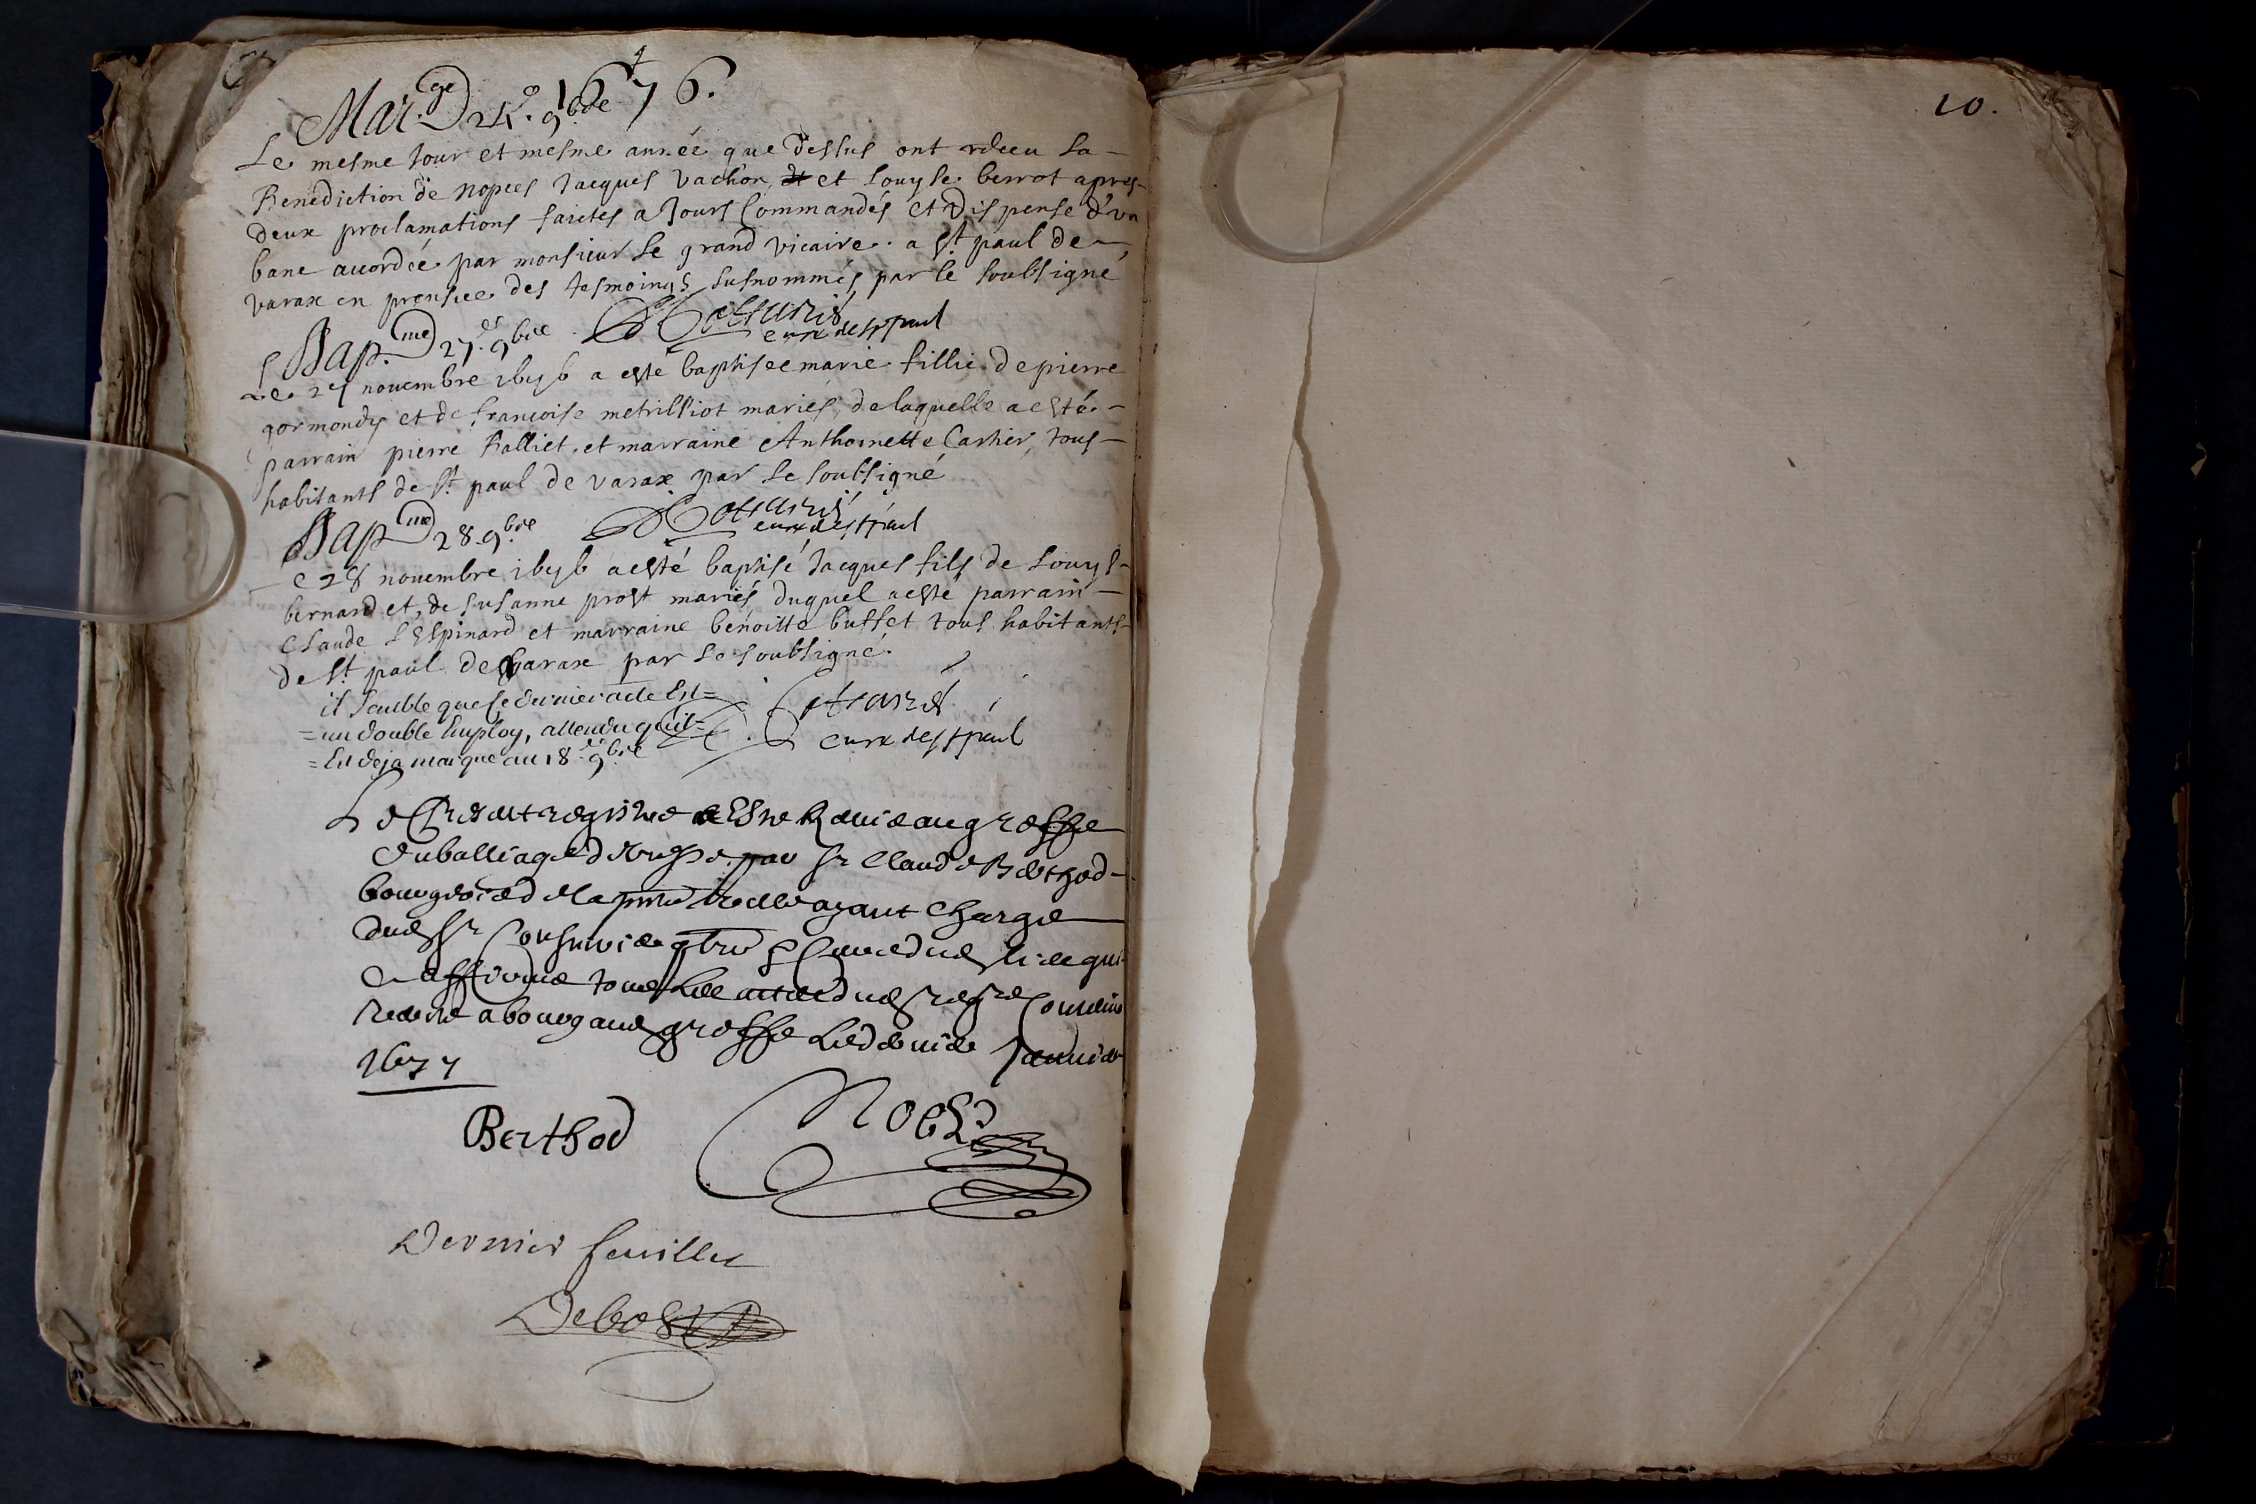 1676.
Mar.ge 9bre
Le mesme Jour et mesme année que dessus ont receu la
Benediction de nopces Jacques Vachon et Louyse berrot apres
deux proclamations faictes a Jours Commandés et dispense d'vn
banc accordée par monsieur le grand vicaire. a st paul de
varax en presence des tesmoings susnommés par le soubsigné
cure de st paul
Bap.me 27. 9bre
Le 27 novembre 1676 a esté baptisee marie fillie de pierre
gormondy et de francoise metrilliot mariés, de laquelle a esté
parrain pierre Ralliet, et marraine Anthoinette Carrier, tous
habitants de st paul de varax par le soubsigné
cure de st paul
Bap.me 28. 9bre
Le 28 novembre 1676 a esté baptisé Jacques fils de Louys
bernard et de Susanne prost mariés duquel a esté parrain
Claude L'Espinard et marraine benoitte buffet tous habitants
de st paul de varax par le soubsigné.
il semble que ce dernier acte Est
= un double Employ, attendu qu'il
= Est deja marqué au 18.e 9bre
cure de st paul
Le present registre a Este Remis au greffe
du balliage de bresse par sr Claude Berthod
bourgeois de la ville ayant Charge
du sr qui
a affirme tous Les actes
a bourg au greffe Janvier
1677
Berthod
Dernier feuillet
Debost
10.